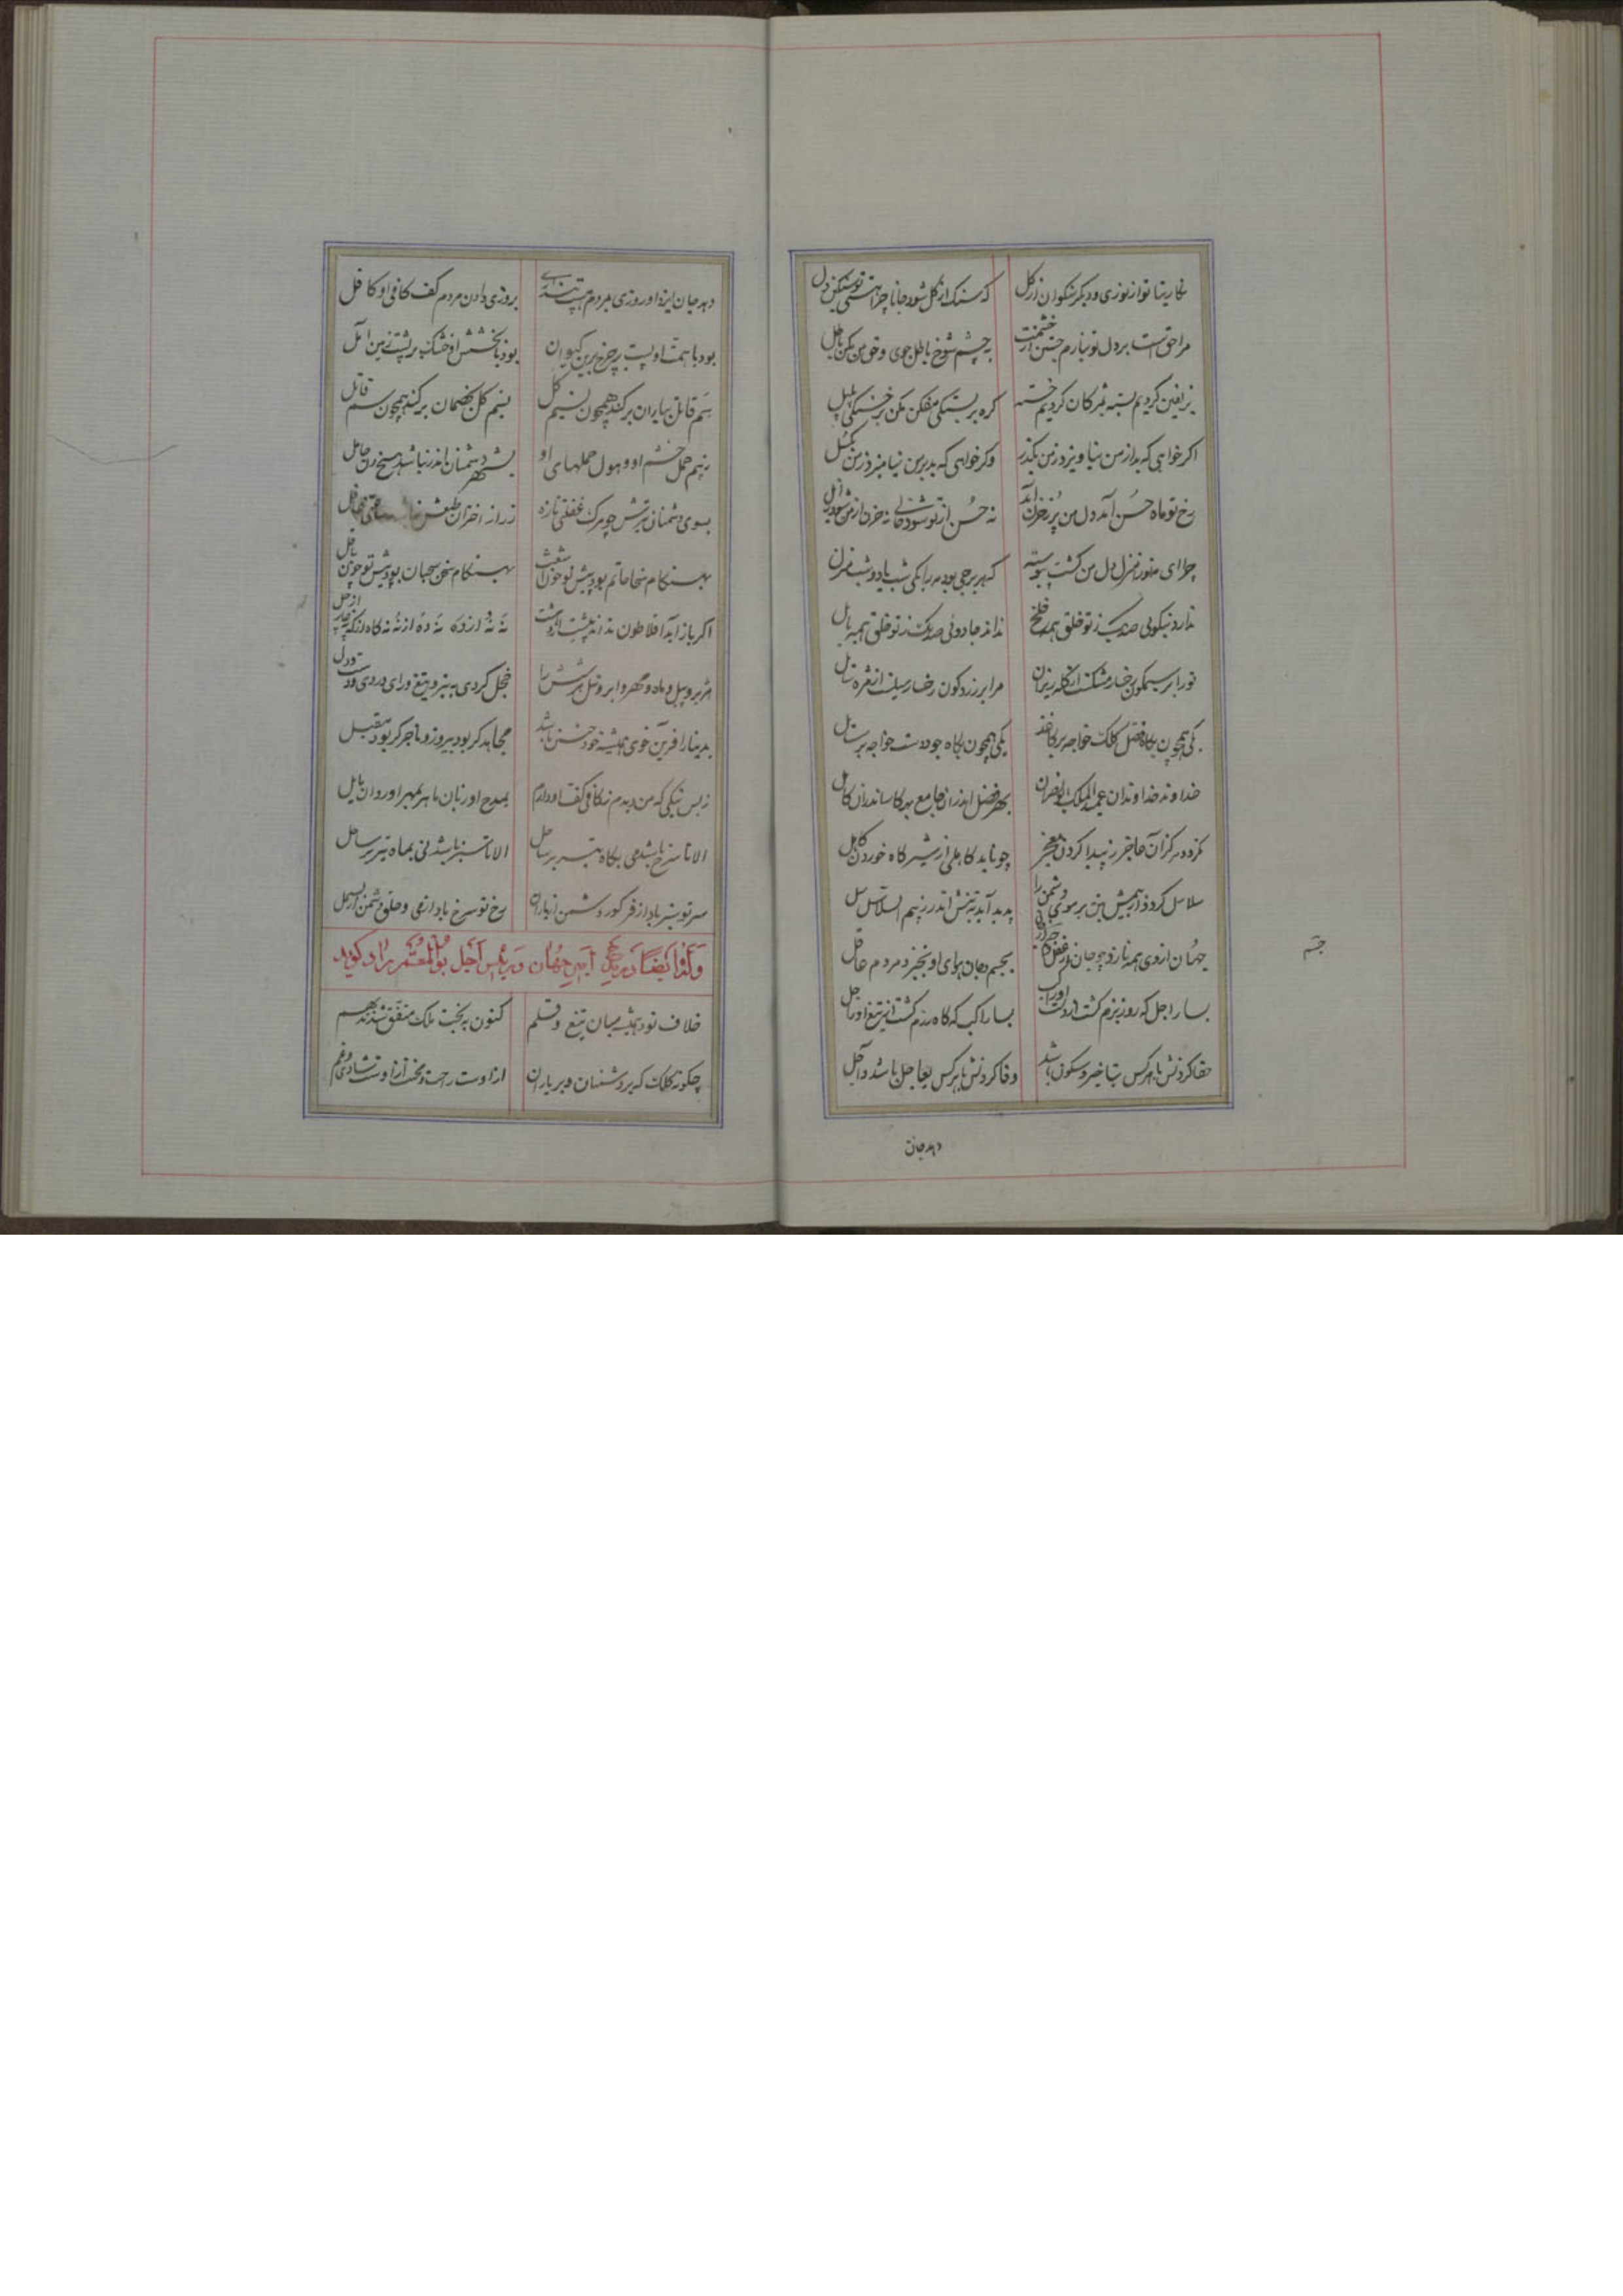 نگارینا تو از نوری و دیگر نیکوان از گل
که سنگ از گل شود جانا چرا هستی تو سنگین دل
مرا حق است بر دل تو نیارم جستن از خشمت
به چشم شوخ باطل جوی و حق من مکن باطل
بزلفین کردیم بسته بمژکان کردیم خسته
کره بر بستکی مفکن مکن بر خستکی پلپل
اکر خواهی که بد از من نیاویزد ز من بگذر
وکر خواهی که بد بر من نیامیزد ز من بگسل
رخ تو ماه حسن آمد دل من پر ز حزن آمد
نه حسن از تو شود خالی نه حزن از من شود زایل
چرا ای ماه نور منزل دل من گشت پیوسته
که هر برجی بود مه را یکی شب یا دو شب منزل
ندارد نیکوئی صد یک ز تو خلق همه خلخ
نداند جادوئی صد یک ز تو خلق همه بابل
تو را بر سیمگون رخسار مشکست از کله ریزان
مرا بر زردگون رخسار سیلست از مژه سایل
یکی همچون بکاه فضل کلک خواجه بر کاغذ
یکی همچون بکاه جود دست خواجه بر سایل
خداوند خداوندان عمید الملک ابونصر آن
بهر فضل اندر آن جامع بهر کاس اندر آن کامل
نکردد سرکران هاجر ز پیدا کردن معجز
چو ناید کاهلی از شیر کاه خوردن کاهل
سلاسل کردد از بیمش بتن بر موی دشمن را
پدید آید بتنش اندر ز بیم السلاسل سل
جهان از وی همه نازد چو جان از فضل
بجسم و جان هوای او بخرد مردم عاقل
بسا راجل که روز بزم گشت از دست او راکب
بسا راکب که کاه رزم گشت از تیغ او راجل
جفا کردنش با هر کس بتاخیر و سکون باشد
وفا کردنش با هر کس بعاجل باشد و آجل
جسم
دهد جان
دهد جان ایزد او روزی مردم
بروزی دادن مردم کف کافی او کافل
بود با همت او پست بر چرخ برین کیوان
بود با بخشش او خشک بر پشت زمین آمل
سم قاتل بیاران بر کند همچون نسیم گل
نسیم گل بخصمان بر کند همچون سم قاتل
ز بیم حمل خشم او و هول حملهای او
بشهر دشمنان اندر نباشد هیچ زن حامل
بسوی دشمنان برش چو مرک غفلتی تازد
ز راز اختران طبعش
بهنگام سخا حاتم بود پیش تو چون اشعث
بهنگام سخن سحبان بود پیش تو چون باقل
اکر باز آید افلاطون نداند پیشت
هژبر و پیل و ماه و مهر و ابر و نیل هر شش را
خجل کردی به نیزه و تیغ و رای و روی و دست و دل
بدینار آفرین خوی همیشه خود چنین باشد
مجاهد گر بود پیروز و تاجر گر بود مقبل
ز بس نیکی که من دیدم ز کافی کف او دارم
بمدح او زبان ماهر بمهر او روان مایل
الا تا سرخ باشد می بکاه تیر بر ساحل
الا تا سبز باشد نی بماه تیر بر ساحل
سر تو سبز باد از فر کور دشمن از باران
رخ تو سرخ باد از می و حلق دشمن از بسمل
وله ایضا در مدح امیر جهان و رئیس اجل بوالمعمر راد گوید
خلاف نود همیشه میان تیغ و قلم
کنون به بخت ملک متفق شدند بهم
چکونه کلک که بر دشمنان و بر یاران
ازاوست راحت و محنت ازاوست شادی و غم